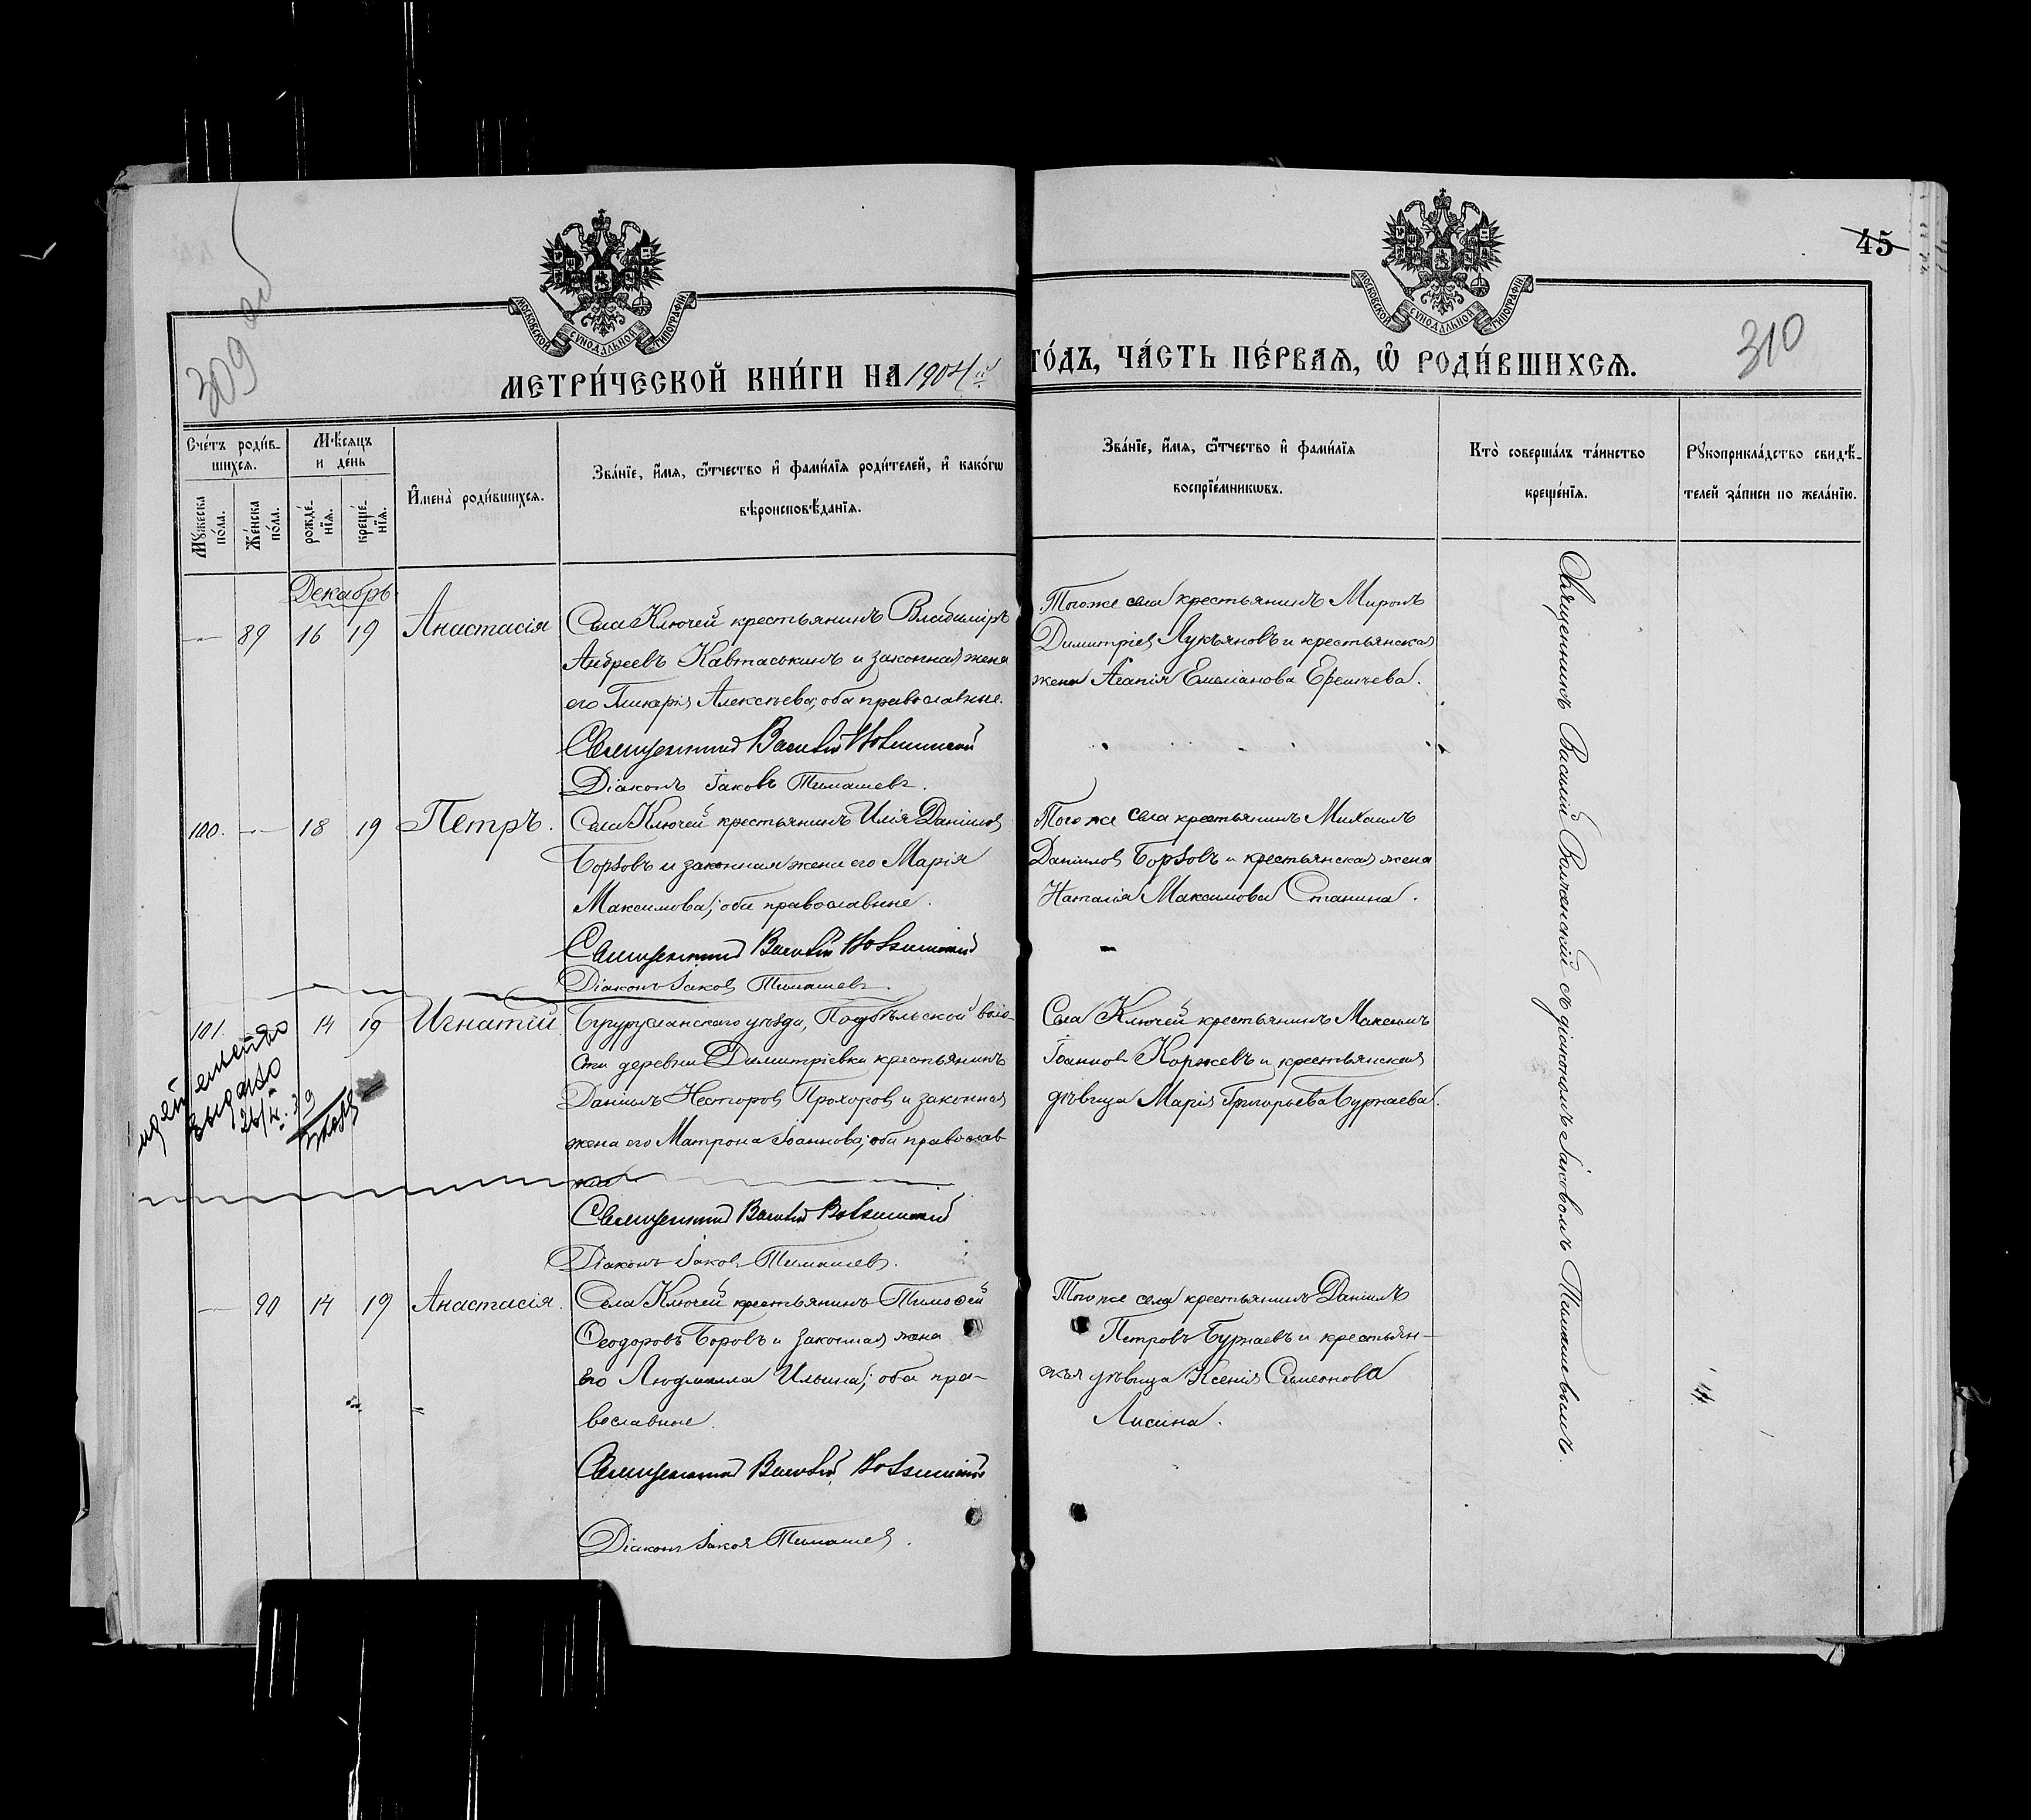 45
309
310
МОСКОВСКОЙ СѴНОДАЛЬНОЙ ТИПОГРАФІИ
МОСКОВСКОЙ СѴНОДАЛЬНОЙ ТИПОГРАФІИ
МЕТРИ́ЧЕСКОЙ КНИ́ГИ НА 1904 й
ГО́ДЪ, ЧА́СТЬ ПЕ́РВАѦ, Ѡ҆ РОДИ́ВШИХСѦ.
Сче́тъ роди́в-
шихсѧ.
Мꙋжеска по́ла.
Же́нска по́ла.
Мѣсѧцъ
и де́нь
рожде́-
нїѧ.
креще́-
нїѧ.
И҆мена̀ роди́вшихсѧ.
Зва́нїе, и҆́мѧ, ѻ҆́тчество и҆ фами́лїѧ роди́телей, и҆ како́гѡ
вѣроисповѣ́данїѧ.
Зва́нїе, и҆́мѧ, ѻ҆́тчество и҆ фами́лїѧ
воспрїе́мникѡвъ.
Кто̀ соверша́лъ та́инство
креще́нїѧ.
Рꙋкоприкла́дство свидѣ́-
телей за́писи по жела́нїю.
Декабрь
— 89 16 19 Анастасія
Села Ключей крестьянинъ Владиміръ
Андреевъ Кавтаськинъ и законная жена
его Гликерія Алексѣева; оба православные.
Священникъ Василій
Діаконъ Іаковъ Тимашевъ.
Тогоже села крестьянинъ Миронъ
Димитріев Лукьяновъ и крестьянская
жена Агапія Емеліанова
100. — 18 19 Петръ.
Села Ключей крестьянинъ Илія Даніилов
Борзовъ и законная жена его Марія
Максимова; оба православные.
Священникъ Василій
Діаконъ Іаков Тимашевъ.
Того же села крестьянинъ Михаилъ
Даніилов Борзовъ и крестьянская жена
Наталія Максимова Станина.
101. 14 19 Игнатій
Бугурусланскаго уѣзда, Подбѣльской воло-
сти деревни Димитріевки крестьянинъ
Даніилъ Несторов Прохоров и законная
жена его Матрона Іоаннова; оба православ-
ные.
Священникъ Василій
Діаконъ Іаков Тимашев.
Села Ключей крестьянинъ Максимъ
Іоаннов Коржевъ и крестьянская
дѣвица Марія Григорьева Бурнаева.
выдано
— 90 14 19 Анастасія.
Села Ключей крестьянинъ Тимоѳей
Ѳеодоровъ Боровъ и законная жена
его Людмилла Ильина; оба пра-
вославные.
Священникъ Василій
Діаконъ Іаков Тимашев.
Того же села крестьянинъ Даніилъ
Петровъ Бурнаевъ и крестьян-
ская дѣвица Ксенія Симеонова
Лисина.
Священникъ Василій съ діакономъ Іаковомъ Тимашевымъ.